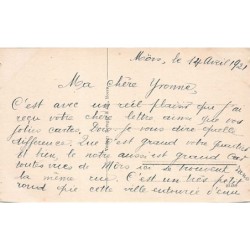 Mérv, le 14 Avril 1921
Ma chère Yvonne
C'est avec un réel plaisir que j'ai
reçu votre chère lettre ainsi que vos
jolies cartes. Dois-je vous dire quelle
différence. Que c'est grand votre quartier
et bien, le notre aussi est grand car
toutes vues de Mérv ici se trouvent dans
la même rue. C'est un très petit
rond que cette ville entourée d'eau